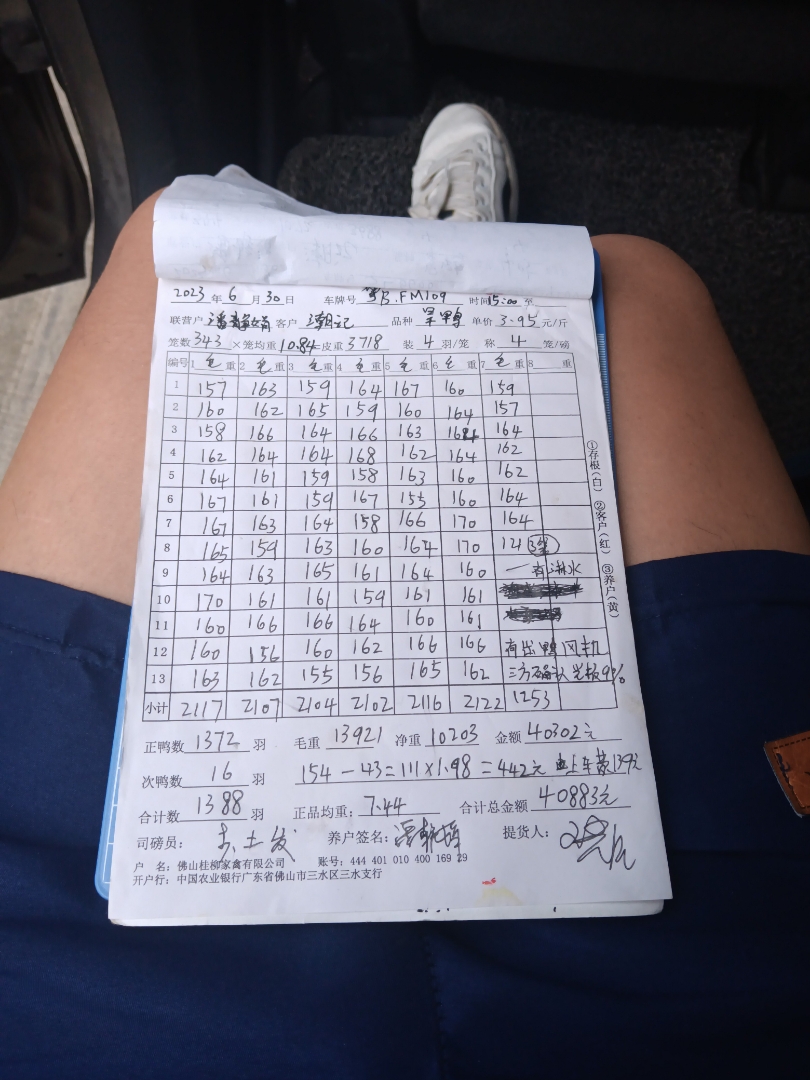 2023 年 6 月 30 日 车牌号 粤B.FM109 时间 15:00 至
联营户 客户 潮记 品种 旱鸭 单价 3.95 元/斤
笼数 343 ×笼均重 10.84 =皮重 3718 装 4 羽/笼 称 4 笼/磅
编号 1 毛 重 2 毛 重 3 毛 重 4 毛 重 5 毛 重 6 毛 重 7 毛 重 8 重
1 157 163 159 164 167 160 159
2 160 162 165 159 160 164 157
3 158 166 164 166 163 164 164
4 162 164 164 168 162 164 162
5 164 161 159 158 163 160 162
6 167 161 159 167 155 160 164
7 167 163 164 158 166 170 164
8 165 159 163 160 164 170 121 (3笼)
9 164 163 165 161 164 160 一有淋水
10 170 161 161 159 161 161
11 160 166 166 164 160 161
12 160 156 160 162 166 166 有出鸭风机
13 163 162 155 156 165 162 三方确认 9%
小计 2117 2107 2104 2102 2116 2122 1253
正鸭数 1372 羽 毛重 13921 净重 10203 金额 40302元
次鸭数 16 羽 154-43=111×1.98=442元 上车费139元
合计数 1388 羽 正品均重: 7.44 合计总金额 40883元
司磅员: 养户签名: 提货人:
户 名: 佛山桂柳家禽有限公司 账号: 444 401 010 400 169 29
开户行: 中国农业银行广东省佛山市三水区三水支行
①存根(白) ②客户(红) ③养户(黄)